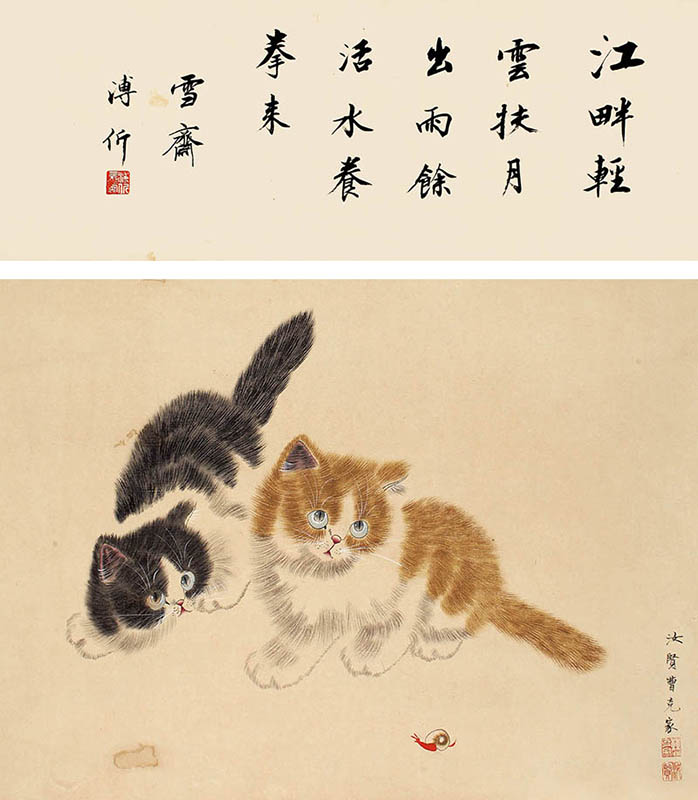 江畔輕
雲扶月
出雨餘
活水養
拳来
雪齋
溥伒
汝賢曹克家